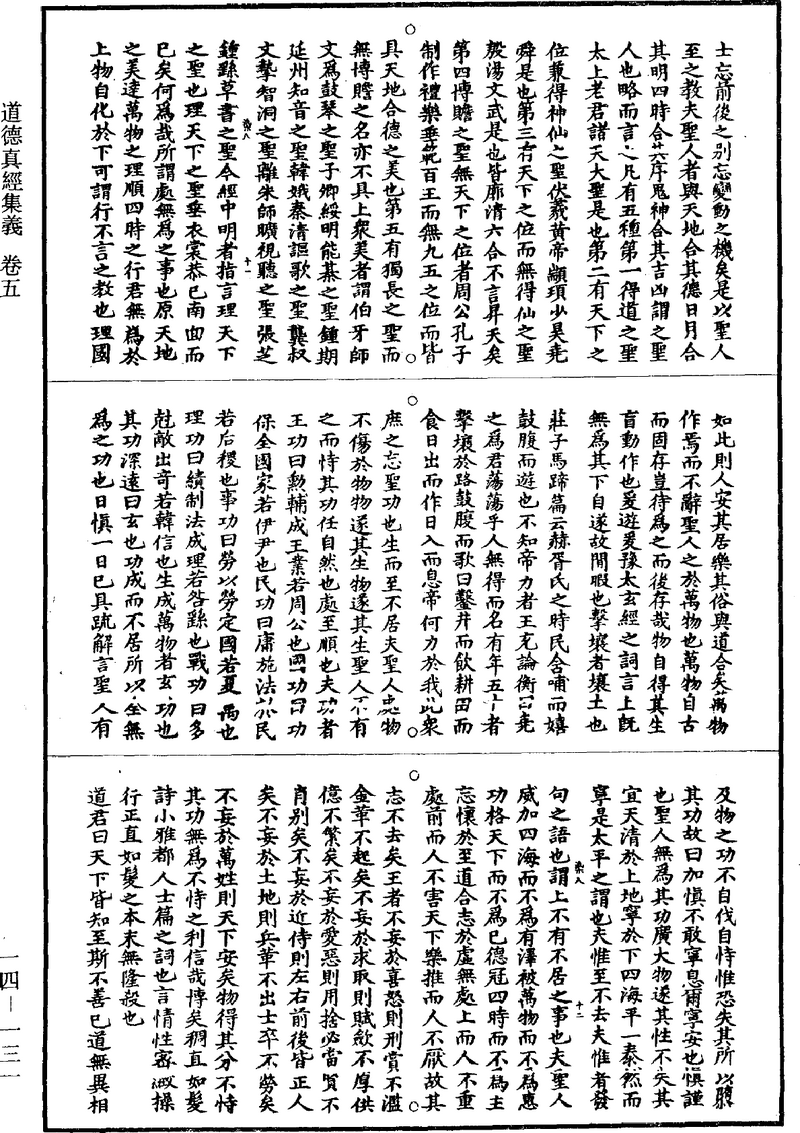 道德真經集義　卷五
一四—一三一
士忘前後之別忘變動之機矣是以聖人
至之教夫聖人者與天地合其德日月合
其明四時合其序鬼神合其吉凶謂之聖
人也略而言之凡有五種第一得道之聖
太上老君諸天大聖是也第二有天下之
位兼得神仙之聖伏羲黃帝顓頊少昊堯
舜是也第三有天下之位而無得仙之聖
殷湯文武是也皆廓清六合不言昇天矣
第四博贍之聖無天下之位者周公孔子
制作禮樂垂範百王而無九五之位而皆
具天地合德之美也第五有獨長之聖而
無博贍之名亦不具上衆美者謂伯牙師
文爲鼓琴之聖子卿綏明能棊之聖鍾期
延州知音之聖韓娥秦清謳歌之聖龔叔
文摯智洞之聖離朱師曠視聽之聖張芝
染八　十一
鍾繇草書之聖今經中明者指言理天下
之聖也理天下之聖垂衣裳恭己南面而
已矣何爲哉所謂處無爲之事也原天地
之美達萬物之理順四時之行君無爲於
上物自化於下可謂行不言之教也理國
如此則人安其居樂其俗與道合矣萬物
作焉而不辭聖人之於萬物也萬物自古
而固存豈待爲之而後存哉物自得其生
育動作也爰遊爰豫太玄經之詞言上既
無爲其下自遂故閒暇也擊壤者壤土也
莊子馬蹄篇云赫胥氏之時民含哺而嬉
鼓腹而遊也不知帝力者王充論衡曰堯
之爲君蕩蕩乎人無得而名有年五十者
擊壤於路鼓腹而歌曰鑿井而飲耕田而
食日出而作日入而息帝何力於我此衆
庶之忘聖功也生而至不居夫聖人處物
不傷於物物遂其生物遂其生聖人不有
之而恃其功任自然也處至順也夫功者
王功曰勳輔成王業若周公也國功曰功
保全國家若伊尹也民功曰庸施法於民
若后稷也事功曰勞以勞定國若夏禹也
理功曰績制法成理若咎繇也戰功曰多
尅敵出奇若韓信也生成萬物者玄功也
其功深遠曰玄也功成而不居所以全無
爲之功也日愼一日已具疏解言聖人有
及物之功不自伐自恃惟恐失其所以隳
其功故曰加愼不敢寧息爾寧安也愼謹
也聖人無爲其功廣大物遂其性不失其
宜天清於上地寧於下四海平一泰然而
寧是太平之謂也夫惟至不去夫惟者發
染八　十二
句之語也謂上不有不居之事也夫聖人
威加四海而不爲有澤被萬物而不爲惠
功格天下而不爲已德冠四時而不爲主
忘懷於至道合志於虛無處上而人不重
處前而人不害天下樂推而人不厭故其
志不去矣王者不妄於喜怒則刑賞不濫
金革不起矣不妄於求取則賦斂不厚供
億不繁矣不妄於愛惡則用捨必當賢不
肖別矣不妄於近侍則左右前後皆正人
矣不妄於土地則兵革不出士卒不勞矣
不妄於萬姓則天下安矣物得其分不恃
其功無爲不恃之利信哉博矣稠直如髮
詩小雅都人士篇之詞也言情性密緻操
行正直如髮之本末無隆殺也
道君曰天下皆知至斯不善已道無異相